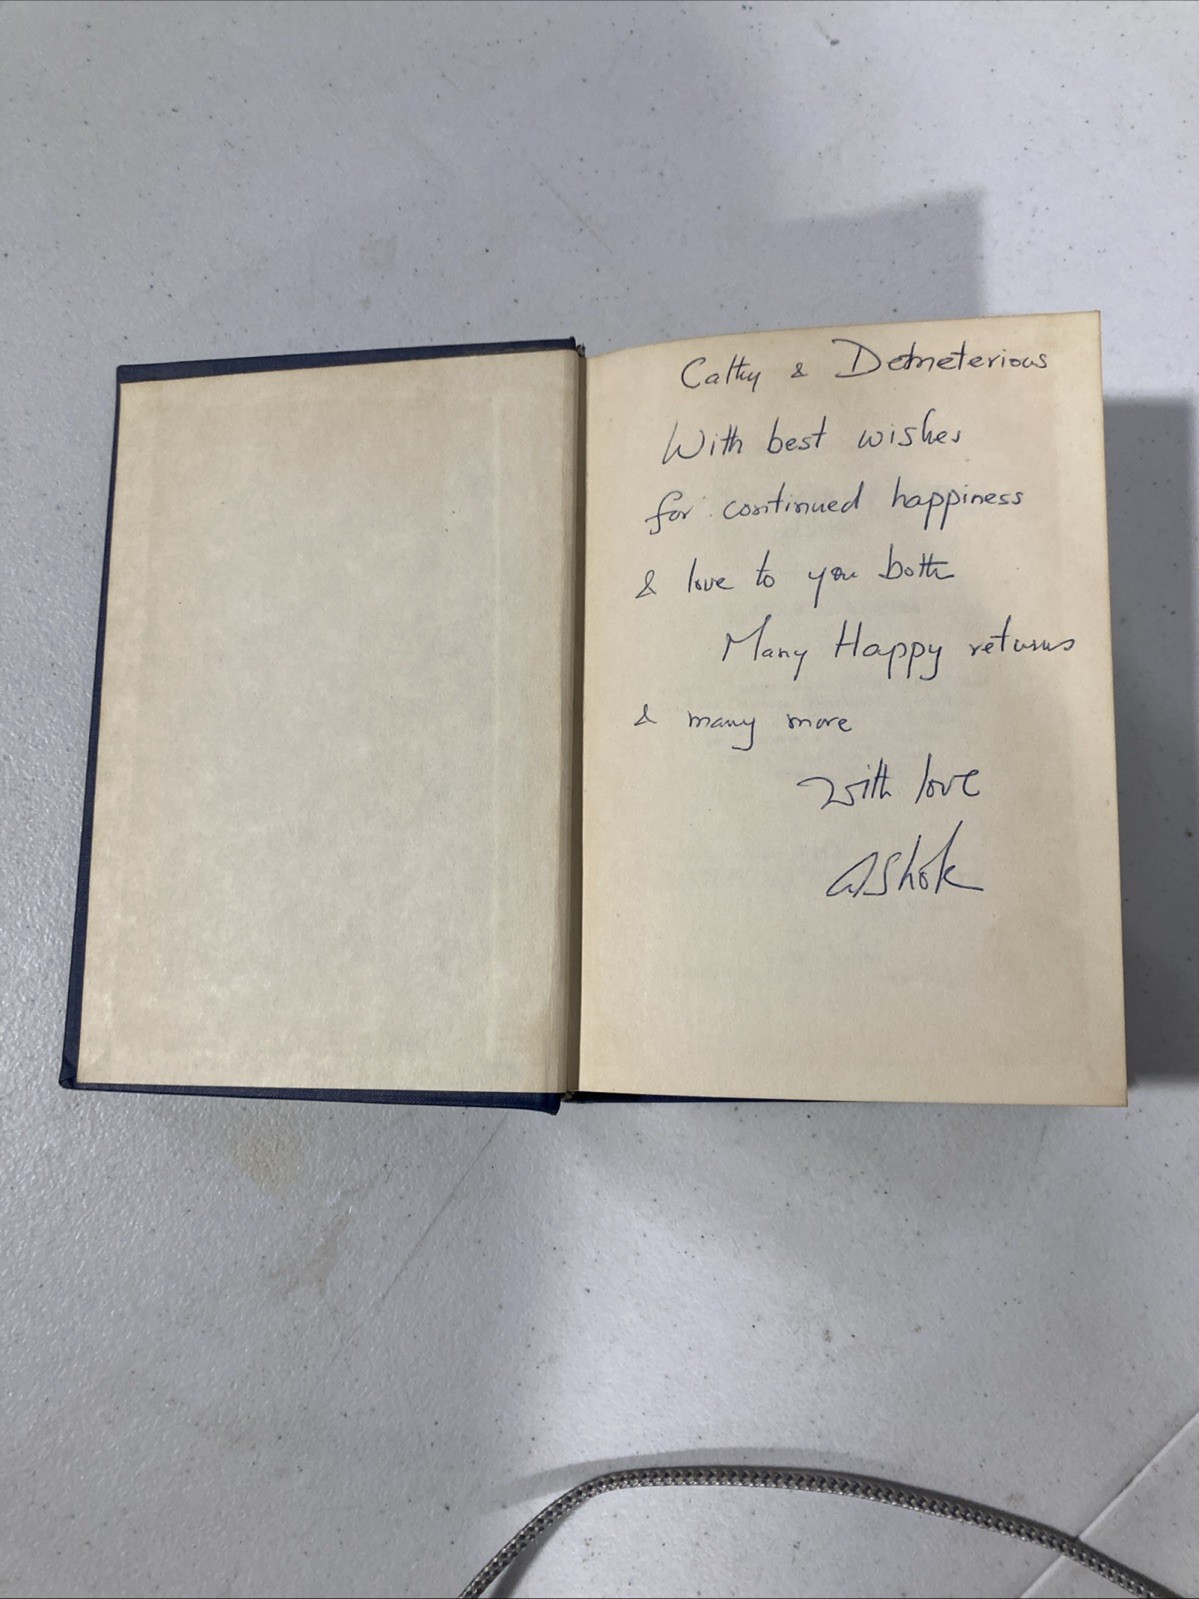 Cathy & Demeterious
With best wishes
for continued happiness
& love to you both
Many Happy returns
& many more
With love
Ashok